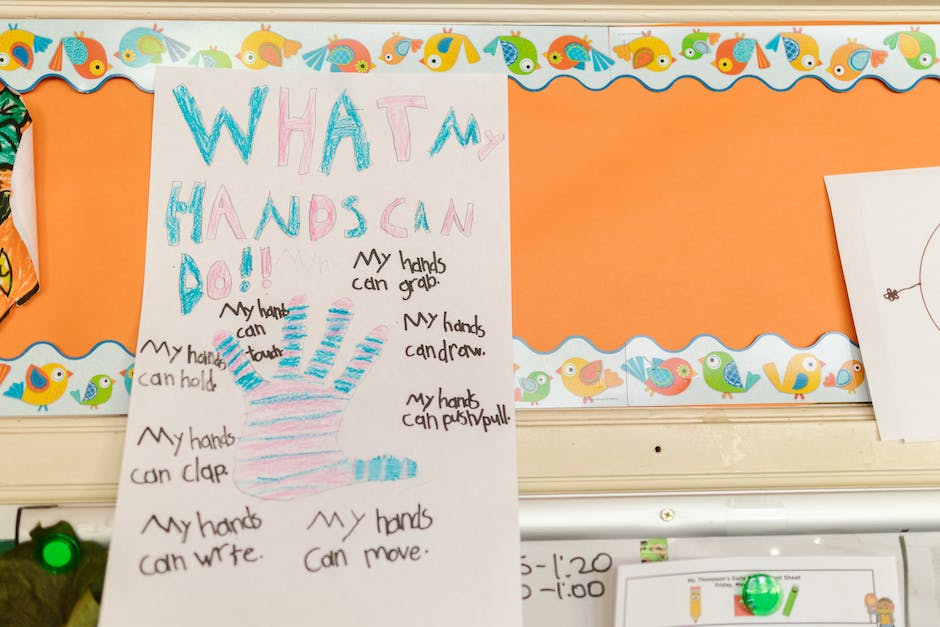 WHAT My
HANDS CAN
DO!!
My hands
can grab.
My hands
can
touch.
My hands
can draw.
My hands
can hold.
My hands
can push/pull.
My hands
can clap.
My hands
can write.
My hands
can move.
-1:20
-1:00
Ms. Thompson's Daily Sheet
Friday,